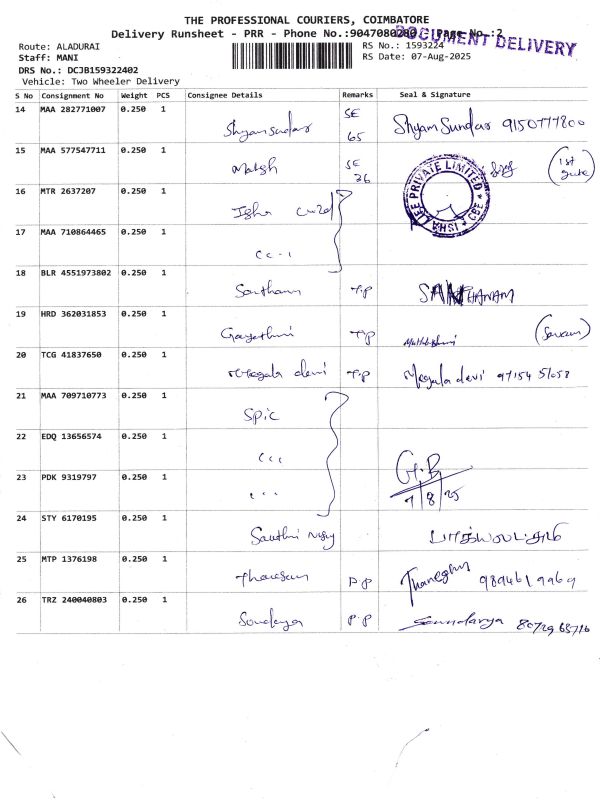 THE PROFESSIONAL COURIERS, COIMBATORE
Delivery Runsheet - PRR - Phone No.:9047080280 Page No.:2
DOCUMENT DELIVERY
Route: ALADURAI
RS No.: 1593224
Staff: MANI
RS Date: 07-Aug-2025
DRS No.: DCJB159322402
Vehicle: Two Wheeler Delivery
S No Consignment No Weight PCS Consignee Details Remarks Seal & Signature
14 MAA 282771007 0.250 1 Shyamsundar SE 65 Shyam Sundar 9150777800
15 MAA 577547711 0.250 1 SE 36 (1st gate)
PRIVATE LIMITED CBE ISHA
16 MTR 2637207 0.250 1 Isha
17 MAA 710864465 0.250 1
18 BLR 4551973802 0.250 1 Santhanam T.P SANTHANAM
19 HRD 362031853 0.250 1 Gayathri T.P
20 TCG 41837650 0.250 1 Megala devi T.P Megala devi
21 MAA 709710773 0.250 1 Spic
22 EDQ 13656574 0.250 1
23 PDK 9319797 0.250 1 G.B 7/8/25
24 STY 6170195 0.250 1
25 MTP 1376198 0.250 1 P.P 9894619969
26 TRZ 240040803 0.250 1 Soundarya P.P Soundarya